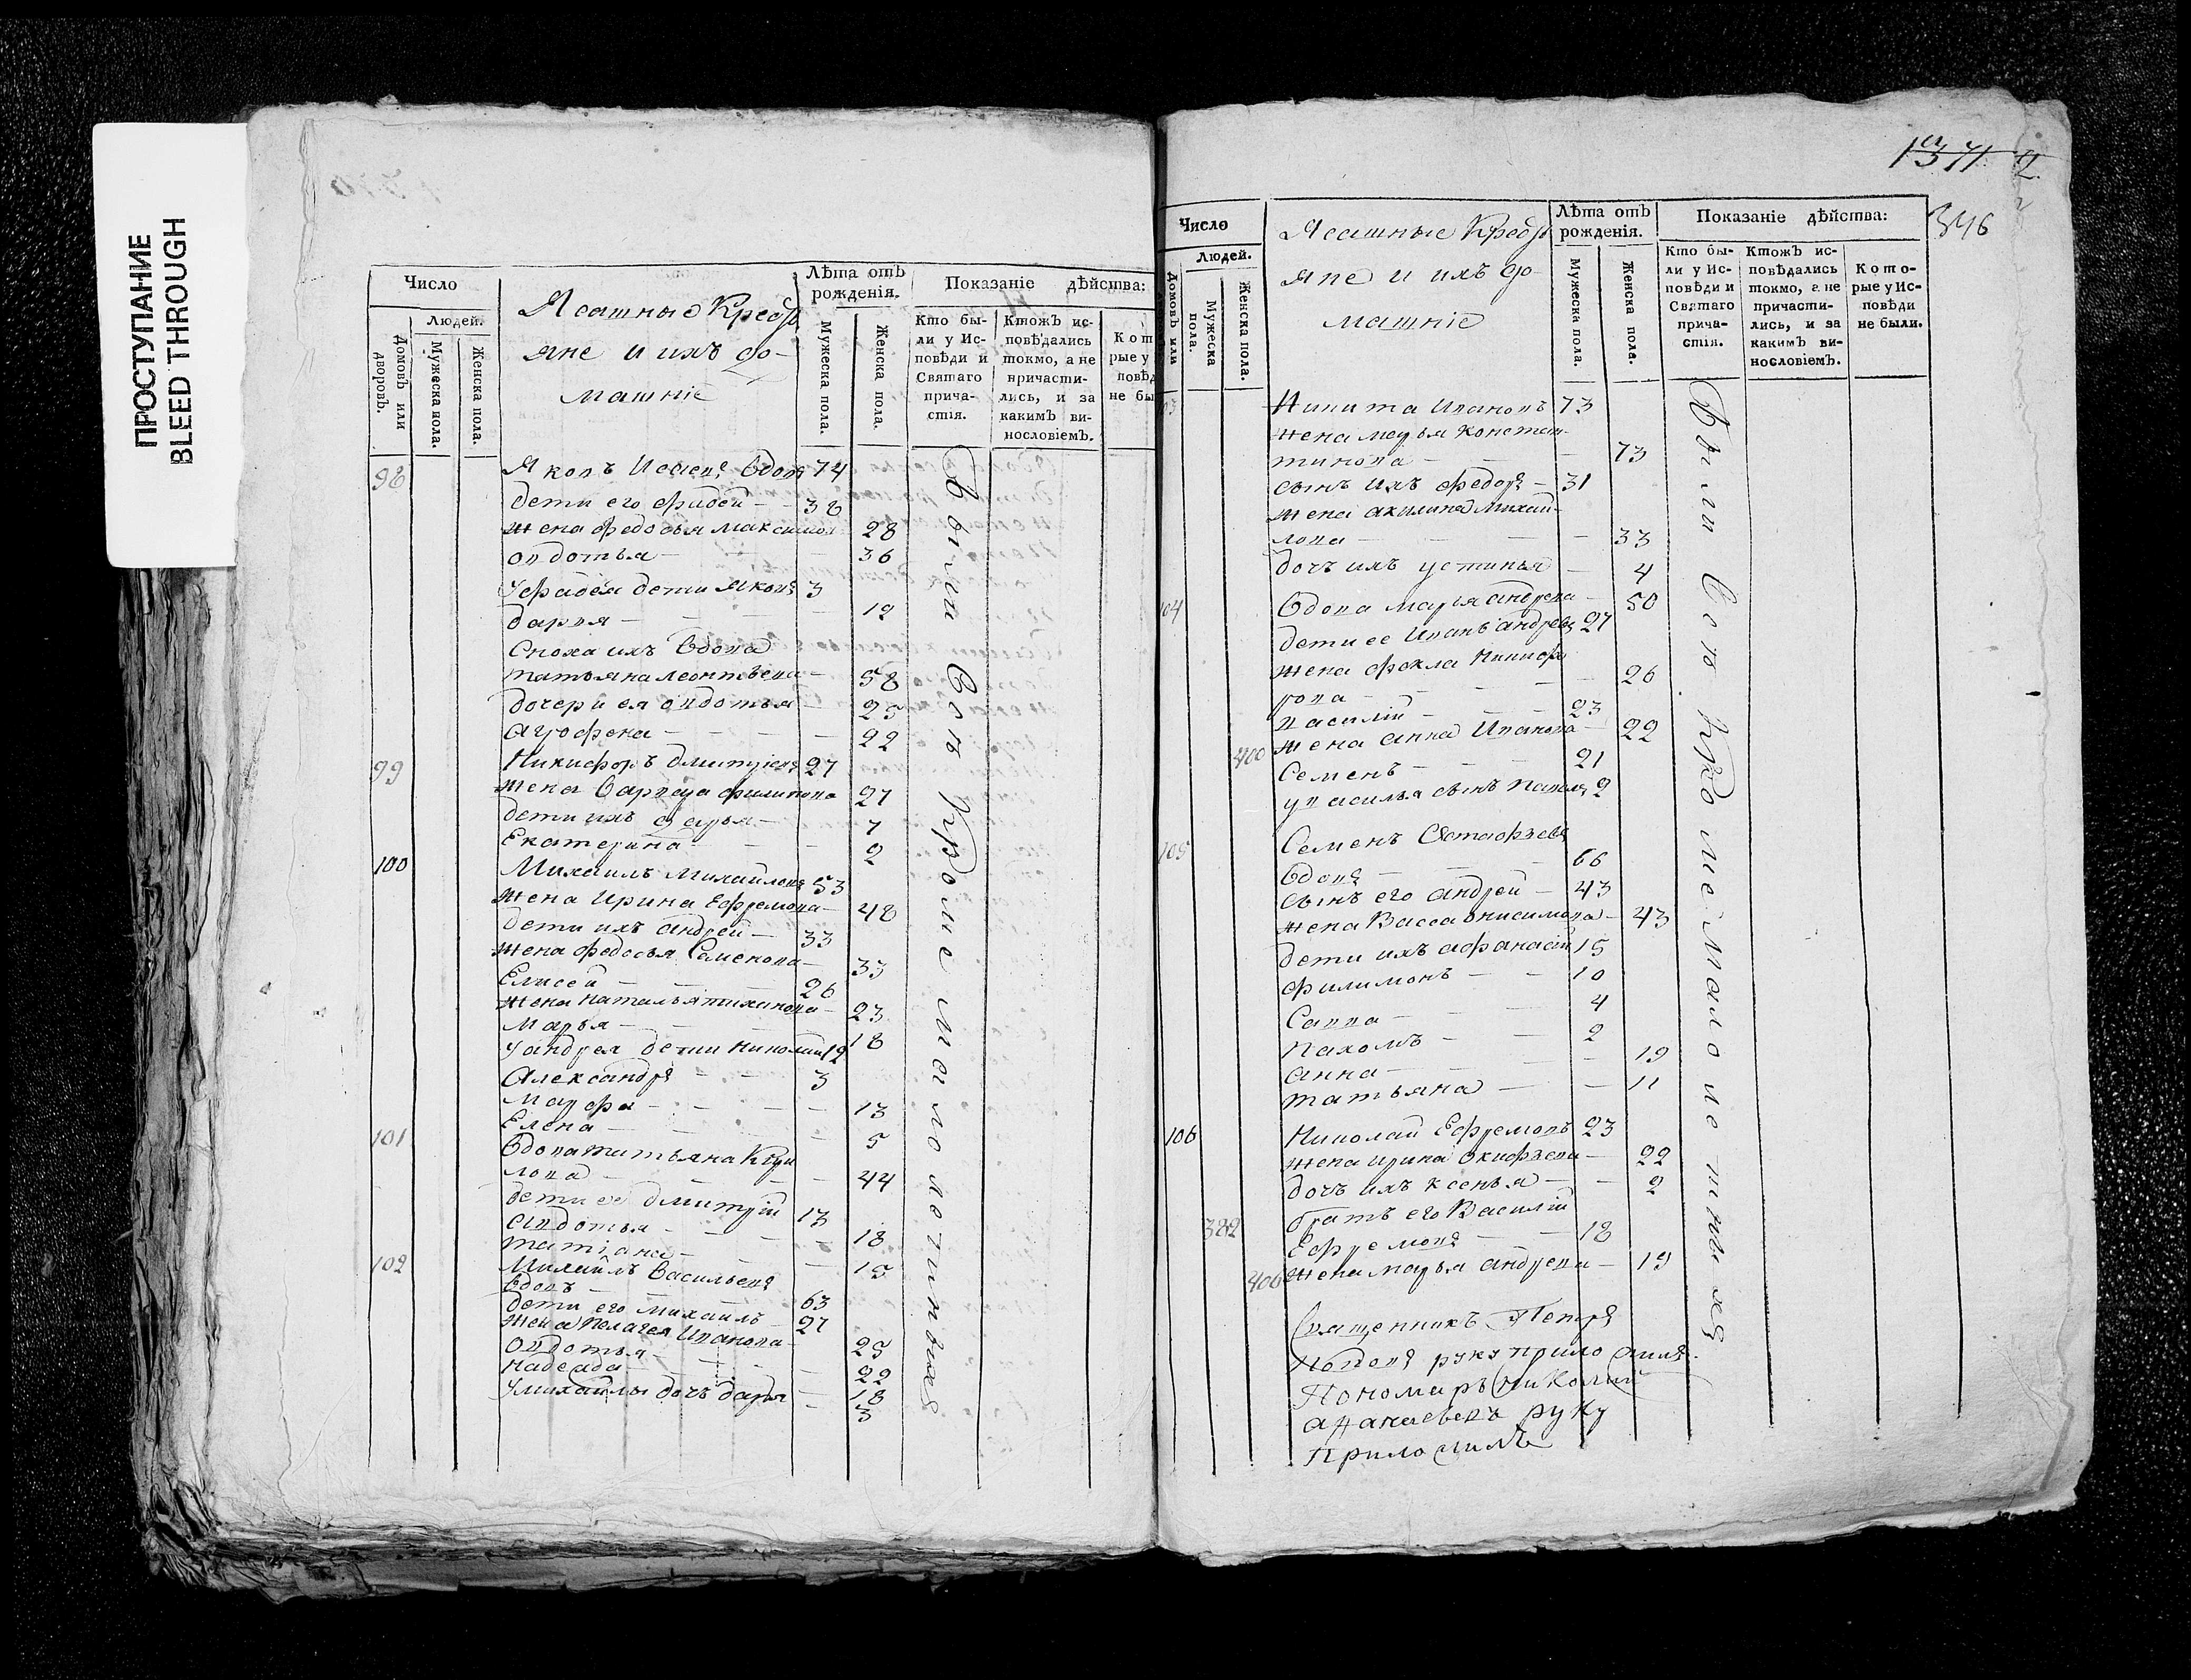 ПРОСТУПАНИЕ
BLEED THROUGH
Число
Людей.
Домовъ или дворовъ.
Мужеска пола.
Женска пола.
Ясашные Кресть
яне и ихъ до-
машніе
Лѣта отъ рожденія.
Мужеска пола.
Женска пола.
Показаніе дѣйства:
Кто бы-
ли у Ис-
повѣди и
Святаго
прича-
стія.
Ктожъ ис-
повѣдались
токмо, а не
причасти-
лись, и за
какимъ ви-
нословіемъ.
Кот
рые у
повѣд
не бы
98 Яковъ Исаевъ вдовъ 74
дети его Фадей 38
жена федосья максимов 28
овдотья 36
У фадея дети Яковъ 3
дарья 12
Сноха ихъ вдова
татьяна леонтьева 58
дочери ея овдотья 25
агрофена 22
99 Никифоръ дмитріевъ 27
жена варвара филипова 27
дети ихъ дарья 7
Екатерина 2
100 Михаилъ михайловъ 53
жена Ирина Ефремова 48
дети ихъ андрей 33
жена федосья Семенова 33
Елисей 26
жена наталья тихинова 23
марья 18
У андрея дети николай 12
Александръ 3
марфа 13
Елена 5
101 Вдова татьяна Кири
лова 44
дети ее дмитрій 13
авдотья 18
татіана 15
102 Михайлъ васильевъ
вдовъ 63
дети его михаилъ 27
жена пелагея Иванова 25
овдотья 22
надежда 18
У михайлы дочь дарья 3
Были Все Кроме малолетныхъ
1371
346
Число
Людей.
Домовъ или
Мужеска пола.
Женска пола.
Ясашные Кресть
яне и ихъ до-
машніе
Лѣта отъ рожденія.
Мужеска пола.
Женска пола.
Показаніе дѣйства:
Кто бы-
ли у Ис-
повѣди и
Святаго
прича-
стія.
Ктожъ ис-
повѣдались
токмо, а не
причасти-
лись, и за
какимъ ви-
нословіемъ.
Кото-
рые у Ис-
повѣди
не были.
03 Никита Ивановъ 73
жена марья констан-
тинова 73
сынъ ихъ федоръ 31
жена акилина михай-
лова 33
дочъ ихъ устинья 4
104 Вдова марья андрева 50
дети ее Иванъ андревъ 27
жена фекла никифо
рова 26
василій 23
жена анна Иванова 22
400 Семенъ 21
у василья сынъ павелъ 2
105 Семенъ Остафьевъ
вдовъ 66
сынъ его андрей 43
жена Васса онисимова 43
дети ихъ афанасій 15
филимонъ 10
Савва 4
пахомъ 2
анна 19
татьяна 11
106 Николай Ефремовъ 23
жена ирина окифьева 22
дочъ ихъ ксенья 2
братъ его Василій
382 Ефремовъ 18
406 жена марья андреева 19
Были Все Кроме малолетныхъ
Священникъ Петръ
руку приложилъ.
Пономарь николай
руку
приложилъ